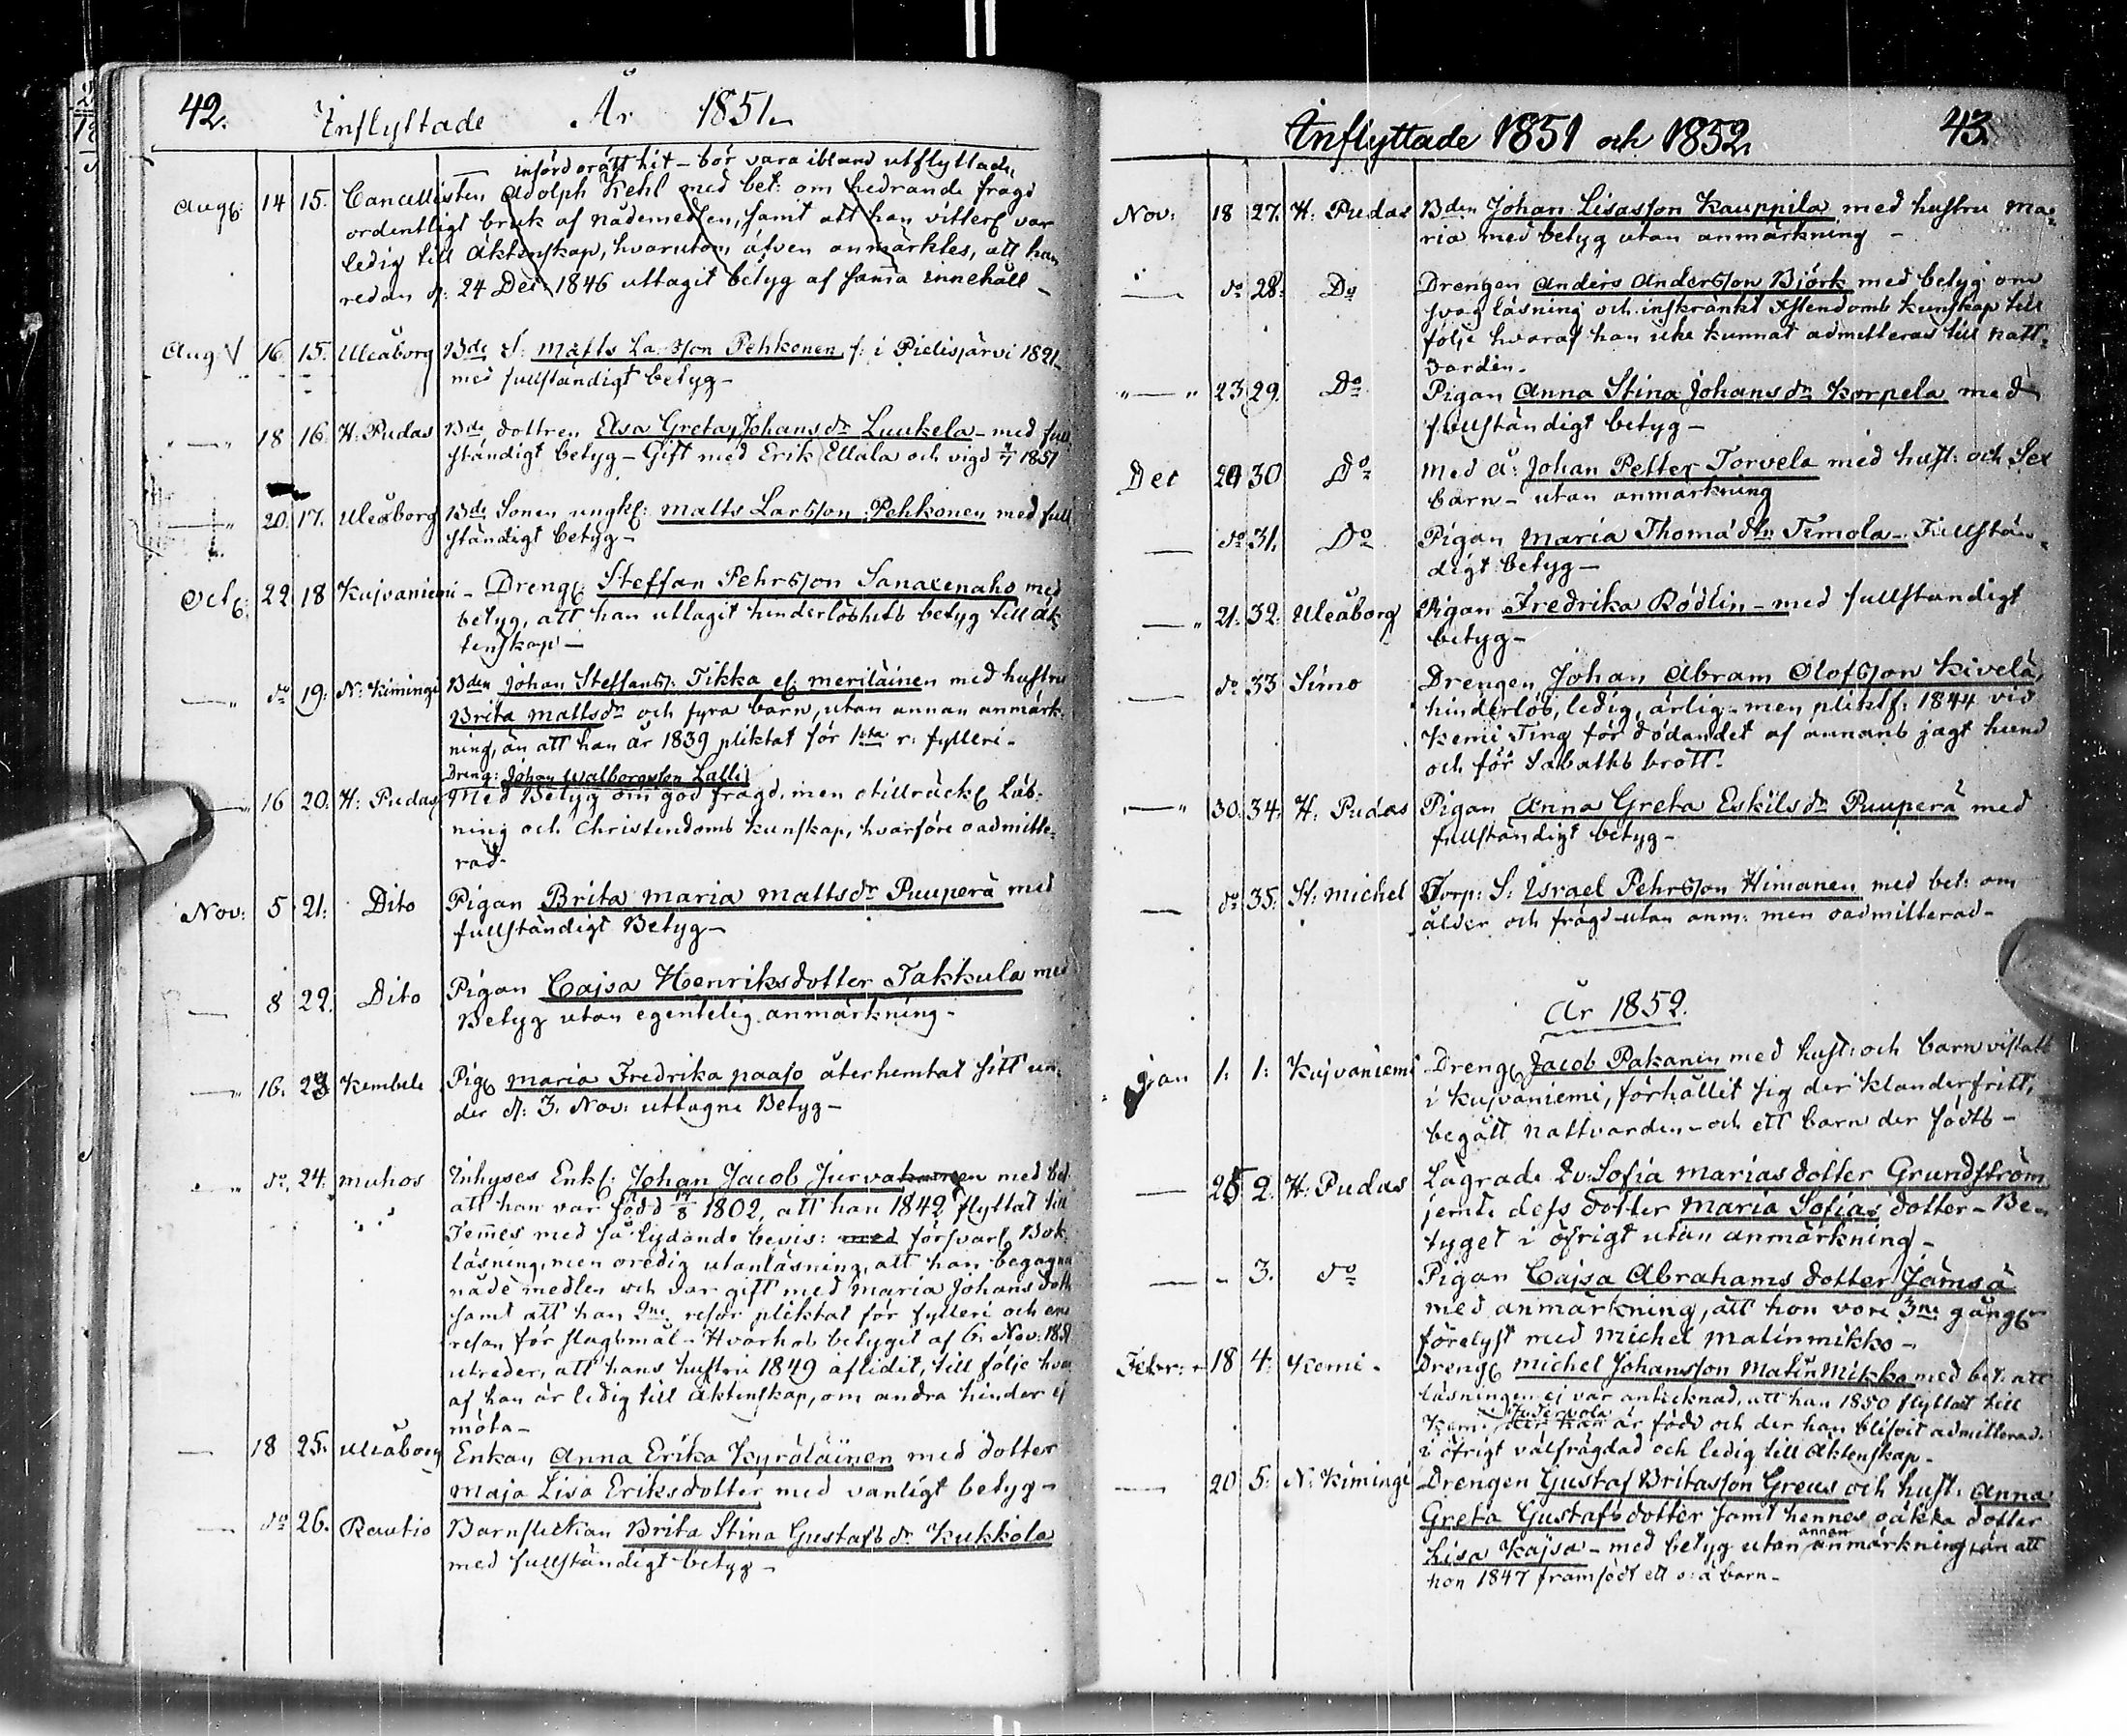 42. Inflyttade År 1851.
införd orätt hit – bör vara ibland utflyttade,
Aug: 14 15. Cancellisten Adolph Kehl med bet: om hedrande frägd
ordentligt bruk af nådemedlen, samt att han vitterl var
ledig till äktenskap, hvarutom äfven anmärktes, att han
redan d: 24 Dec 1846 uttagit betyg af samma innehåll –
Aug 16. 15. Uleåborg Bde S: Matts Larsson Pehkonen, f: i Pielisjärvi 1821
med fullständigt betyg –
" 18 16. H. Pudas Bde dottren Elsa Greta Johansdr Luukela – med full
ständigt betyg – Gift med Erik Ellala och vigd 1851
" 20. 17. Uleåborg Bde Sonen ungk: Matts Larsson Pehkonen med full
ständigt betyg –
Oct: 22 18 Kuivaniemi – Dreng: Steffan Pehrsson Sanaxenaho med
betyg, att han uttagit hinderlöshets betyg till äk
tenskap –
— " do 19. N: Kimingi Bden Johan Steffanss: Tikka el: Meriläinen med hustru
Brita Mattsdr och fyra barn, utan annan anmärk
ning, än att han år 1839 pliktat för 1sta r: fylleri –
Dreng: Johan Walborgsson Lalli
— " 16 20. H: Pudas Med Betyg om god frägd, men otillräckl Läs-
ning och Christendoms kunskap, hvarföre oadmitte-
rad.
Nov: 5 21. Dito Pigan Brita Maria Mattsdr Puuperä med
fullständigt Betyg –
— 8 22. Dito Pigan Cajsa Henriksdotter Takkula med
Betyg utan egentelig anmärkning –
— " 16. 23 Kembele Pig: Maria Fredrika Paaso återhemtat sitt un-
der d: 3. Nov: uttagne Betyg –
— " do. 24. Muhos Inhyses Enkl: Johan Jacob Jurvahanen med bet
att han var född 1802, att han 1842 flyttat till
Temmes med så lydande bevis: med försvarl Bok-
läsning, men oredig utanläsning, att han begagna
nåde medlen och var gift med Maria Johans dott
samt att han 2ne resor pliktat för fylleri och en
resan för slagsmål – Hvarhos betyget af 6. Nov: 1851
utreder, att hans hustru 1849 aflidit, till följe hvar
af han är ledig till äktenskap, om andra hinder ej
möta –
— 18 25. Uleåborg Enkan Anna Erika Kyröläinen med dotter
Maja Lisa Eriksdotter med vanligt betyg –
— do 26. Rautio Barnflickan Brita Stina Gustafsdr Kukkola
med fullständigt betyg –
Inflyttade 1851 och 1852. 43.
Nov: 18 27. H: Pudas Bden Johan Lisasson Kauppila med hustru Ma-
ria med betyg utan anmärkning –
— do 28. Do Drengen Anders Andersson Björk med betyg om
svag läsning och inskränkt Xstendoms kunskap till
följe hvaraf han icke kunnat admitteras till natt-
varden.
" — " 23 29. Do Pigan Anna Stina Johansdr Korpela med
fullständigt betyg –
Dec 20 30 Do Med å: Johan Petter Torvela med hust: och Sex
barn – utan anmärkning
— do 31. Do Pigan Maria Thomädtr Temola – Fullstän-
digt betyg –
— " 21. 32. Uleåborg Pigan Fredrika Rödlin – med fullständigt
betyg –
— do 33 Simo Drengen Johan Abram Olofsson Kivelä,
hinderlös, ledig, ärlig – men pliktf: 1844 vid
Kemi Ting för dödandet af annans jagt hund
och för Sabaths brott.
— " 30. 34. H. Pudas Pigan Anna Greta Eskilsdr Puuperä med
fullständigt betyg –
— do 35. St: Michel Torp: S: Israel Pehrsson Himanen med bet: om
ålder och frägd utan anm: men oadmitterad –
År 1852.
Jan 1. 1. Kuivaniemi Dreng: Jacob Pakanen med hust: och barn vistats
i Kuivaniemi, förhållit sig der klanderfritt,
begått nattvarden – och ett barn der födts –
— 25 2. H: Pudas Lägrade Qv: Sofia Mariasdotter Grundström
jemte dess dotter Maria Sofias dotter – Be-
tyget i öfrigt utan anmärkning –
— " 3. do Pigan Cajsa Abrahams dotter Jämsä
med anmärkning, att hon vore 3ne gånger
förelyst med Michel Matinmikko –
Febr: 18 4. Kemi – Dreng: Michel Johansson MatinMikko med bet: att
läsningen ej var antecknad, att han 1850 flyttat till
Kemi der han är född och der han blifvit admitterad.
i Tervola
i öfrigt välfrägdad och ledig till Äktenskap.
— 20 5. N: Kimingi Drengen Gustaf Britasson Greus och hust: Anna
Greta Gustafsdotter samt hennes oäkta dotter
Lisa Kajsa – med betyg utan annan anmärkning, än att
hon 1847 framfödt ett o: ä barn –